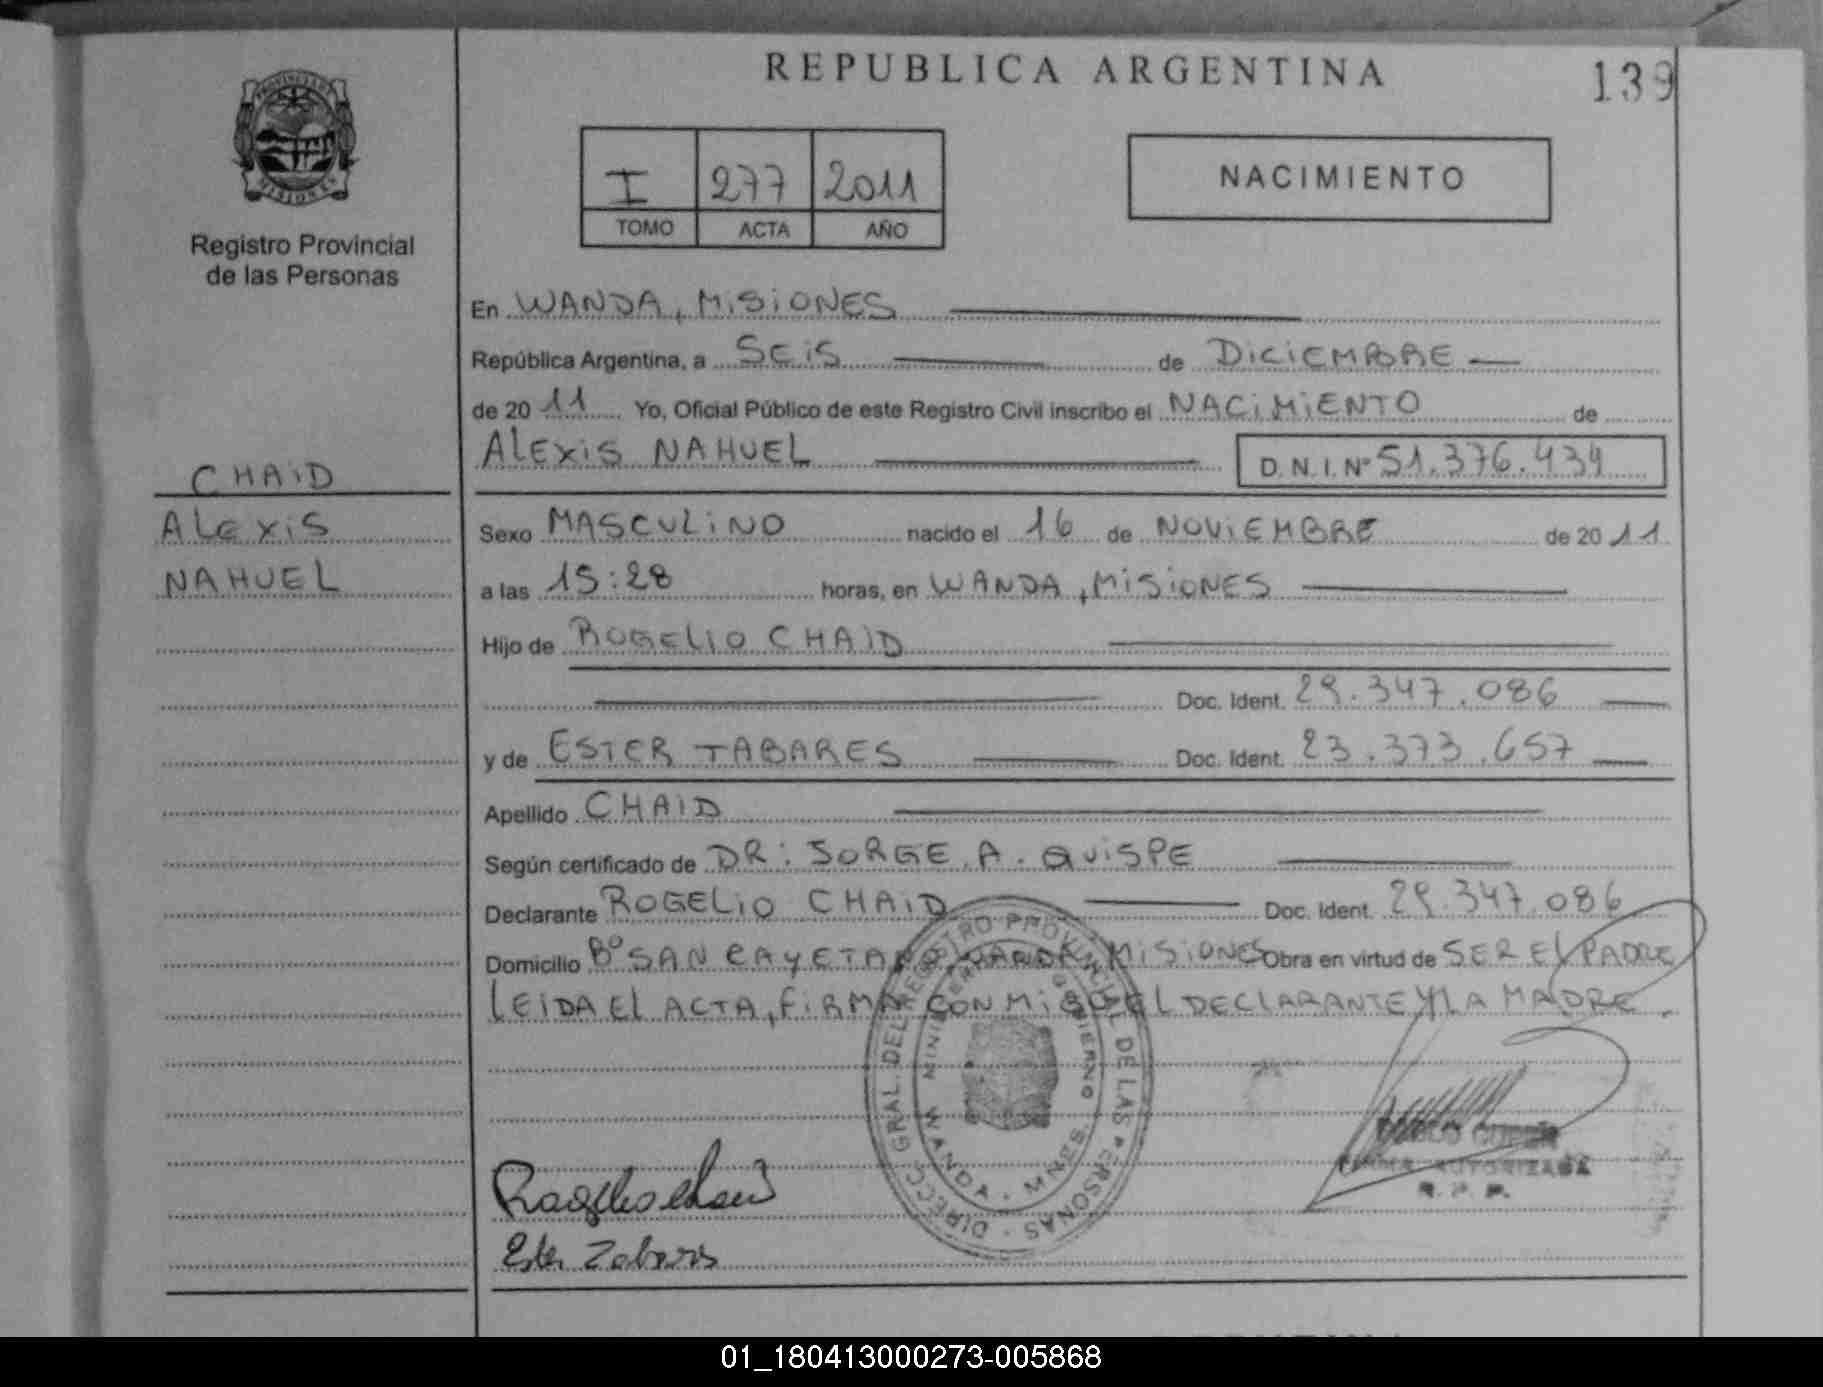 REPUBLICA ARGENTINA
139
PROVINCIA DE
MISIONES
Registro Provincial
de las Personas
I 277 2011
TOMO ACTA AÑO
NACIMIENTO
En WANDA, MISIONES
República Argentina, a SEIS de DICIEMBRE
de 2011 Yo, Oficial Público de este Registro Civil inscribo el NACIMIENTO de
ALEXIS NAHUEL D.N.I. Nº 51.376.434
CHAID
ALEXIS
NAHUEL
Sexo MASCULINO nacido el 16 de NOVIEMBRE de 2011
a las 15:28 horas, en WANDA, MISIONES
Hijo de ROGELIO CHAID
Doc. Ident. 29.347.086
y de ESTER TABARES Doc. Ident. 23.373.657
Apellido CHAID
Según certificado de DR: JORGE A. QUISPE
Declarante ROGELIO CHAID Doc. Ident. 29.347.086
Domicilio Bº SAN CAYETANO WANDA MISIONES Obra en virtud de SER EL PADRE
LEIDA EL ACTA, FIRMA CON MIGO EL DECLARANTE Y LA MADRE.
DIRECC. GRAL. DEL REGISTRO PROVINCIAL DE LAS PERSONAS
MINISTERIO GOBIERNO
WANDA - MNES.
FIRMA AUTORIZADA
R. P. P.
Rogelio chaid
Ester Tabares
01_180413000273-005868